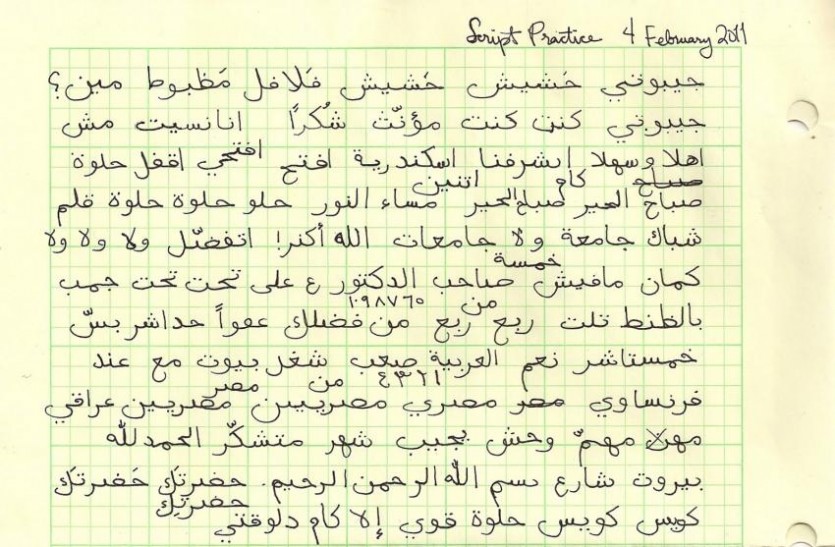 Script Practice 4 February 2011
جيبوتي حَشيش حَشيش فَلافل مَظبوط مين؟
جيبوتي كنت كنت مؤنّث شُكراً انا نسيت مش
اهلا وسهلا اتشرفنا اسكندرية افتح افتحي اقفل حلوة
صباح كام اتنين
صباح الخير صباح الخير مساء النور حلو حلوة حلوة قلم
شباك جامعة ولا جامعات الله أكتر! اتفضّل ولا ولا ولا
خمسة
كمان مافيش صاحب الدكتور ع على تحت تحت جمب
١٠٩٨٧٦٥ من
بالظنط تلت ربع ربع من فضلك عفواً حداشر بسّ
خمستاشر نعم العربية صعب شغل بيوت مع عند
٤٣٢١ من مصر
فرنساوي مصر مصري مصريين مصريين عراقي
مهم مهمّ وحش يجيب شهر متشكّر الحمدلله
بيروت شارع بسم الله الرحمن الرحيم. حضرتَك حَضرتَك
حضرتِك
كويس كويس حلوة قوي إلا كام دلوقتي